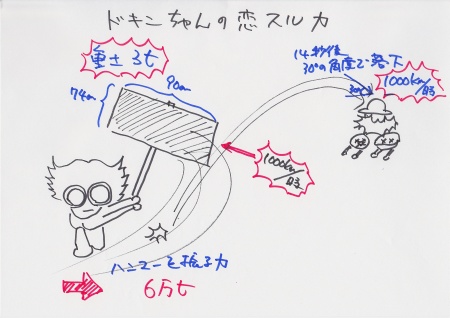 ドキンちゃんの恋スル力
重さ 3t
90cm
74cm
14秒後
30°の角度で落下
30°
1000km/時
1000km/時
ハンマーを振る力
6万t